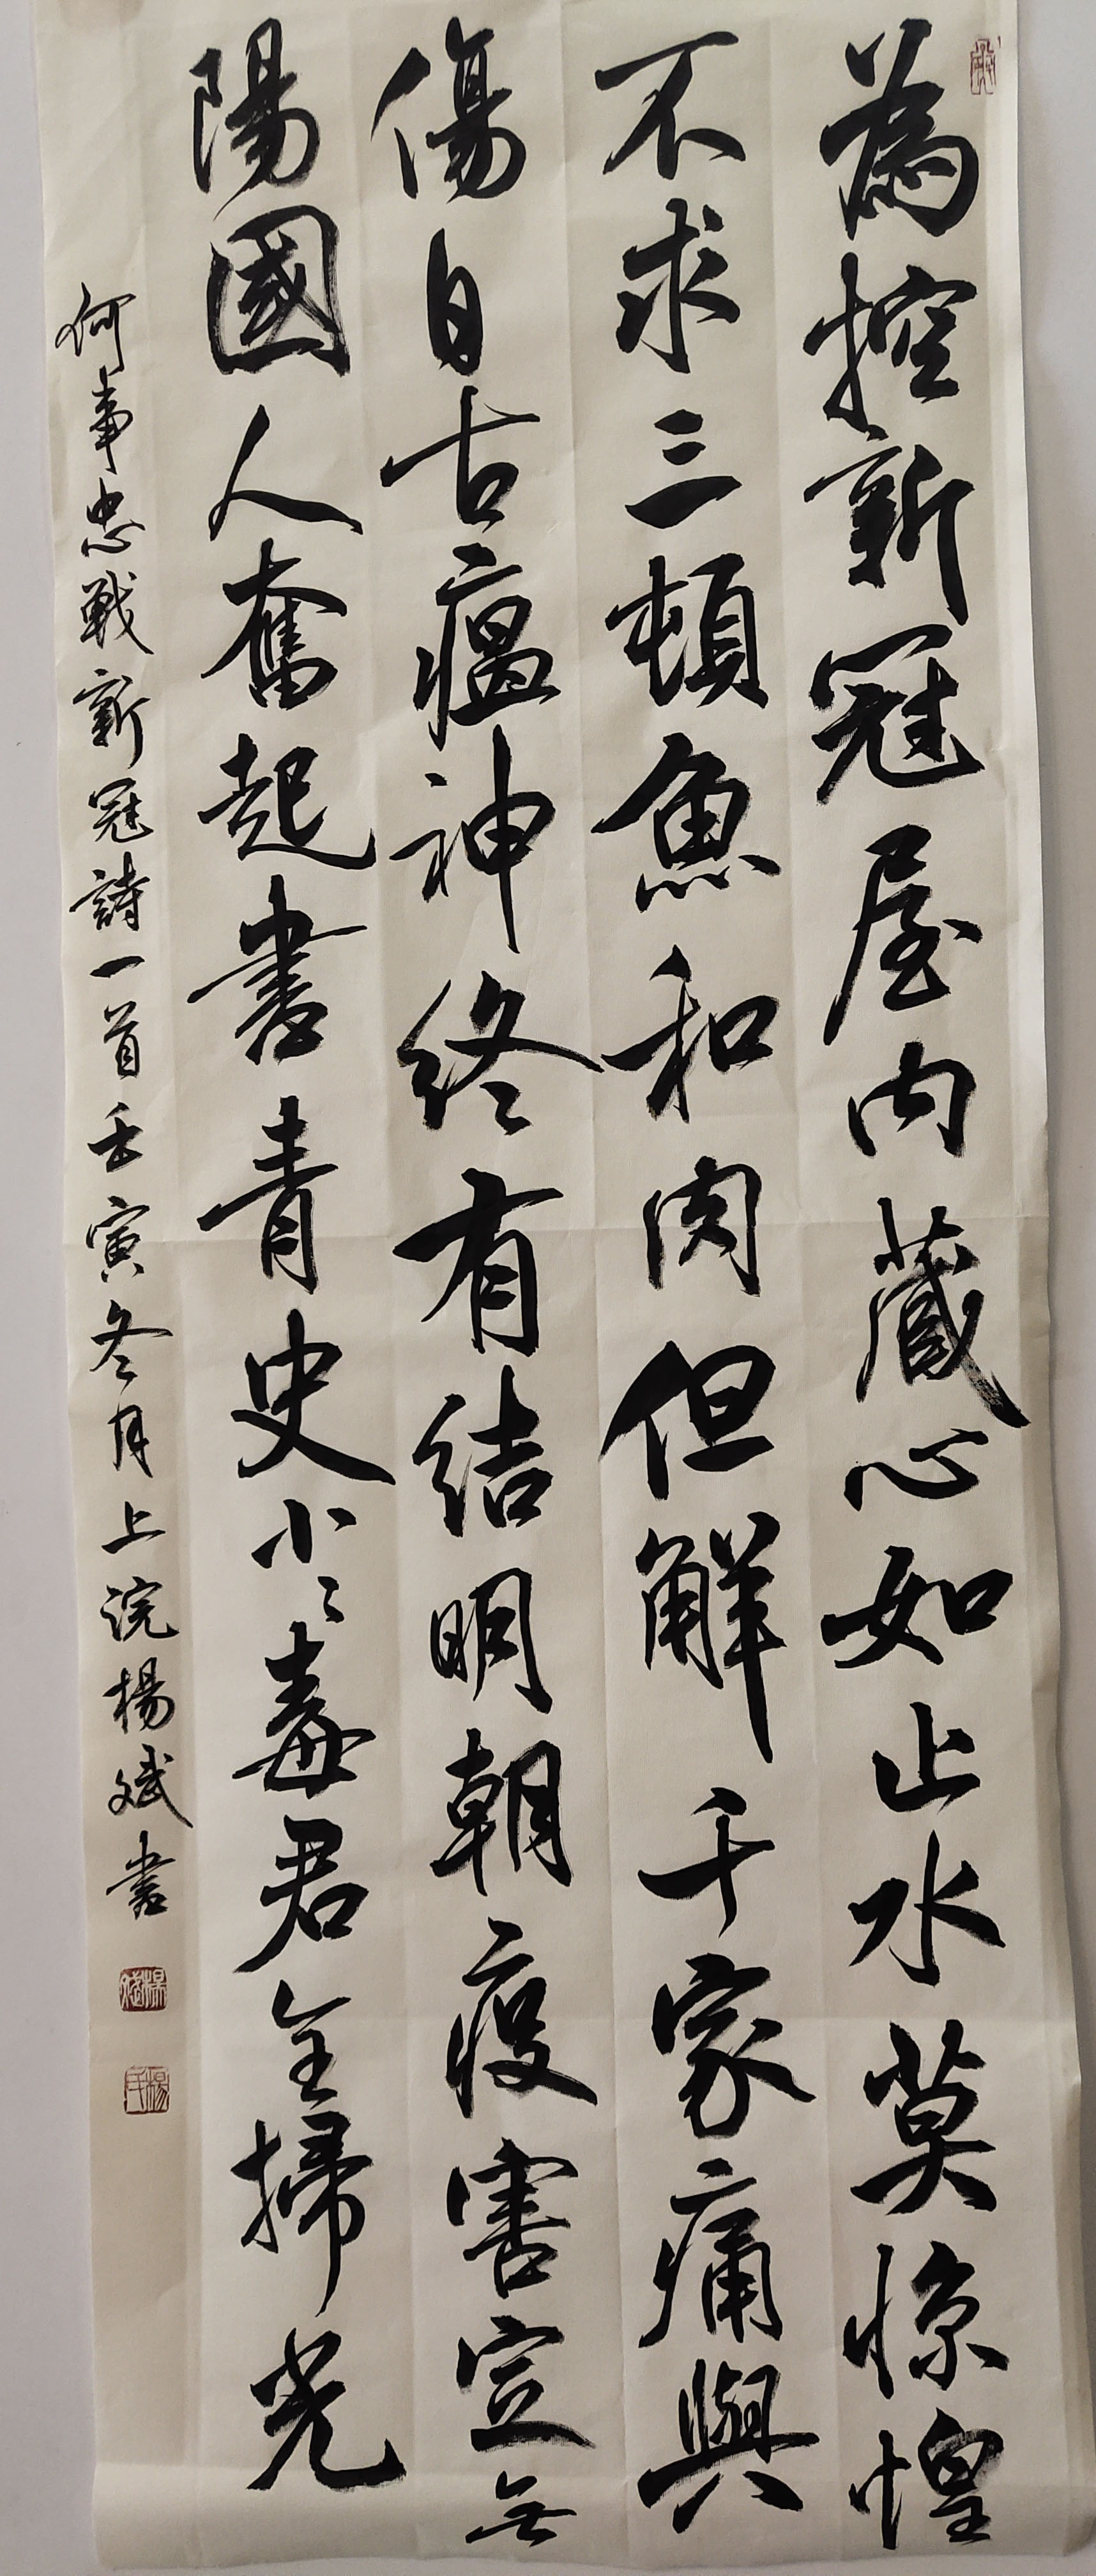 為控新冠屋内藏心如止水莫惊惶
不求三頓魚和肉但解千家痛與
傷自古瘟神終有結明朝疫害定無
陽國人奮起書青史小々毒君全掃光
何事忠戰新冠詩一首壬寅冬月上浣楊斌書
楊斌
楊氏